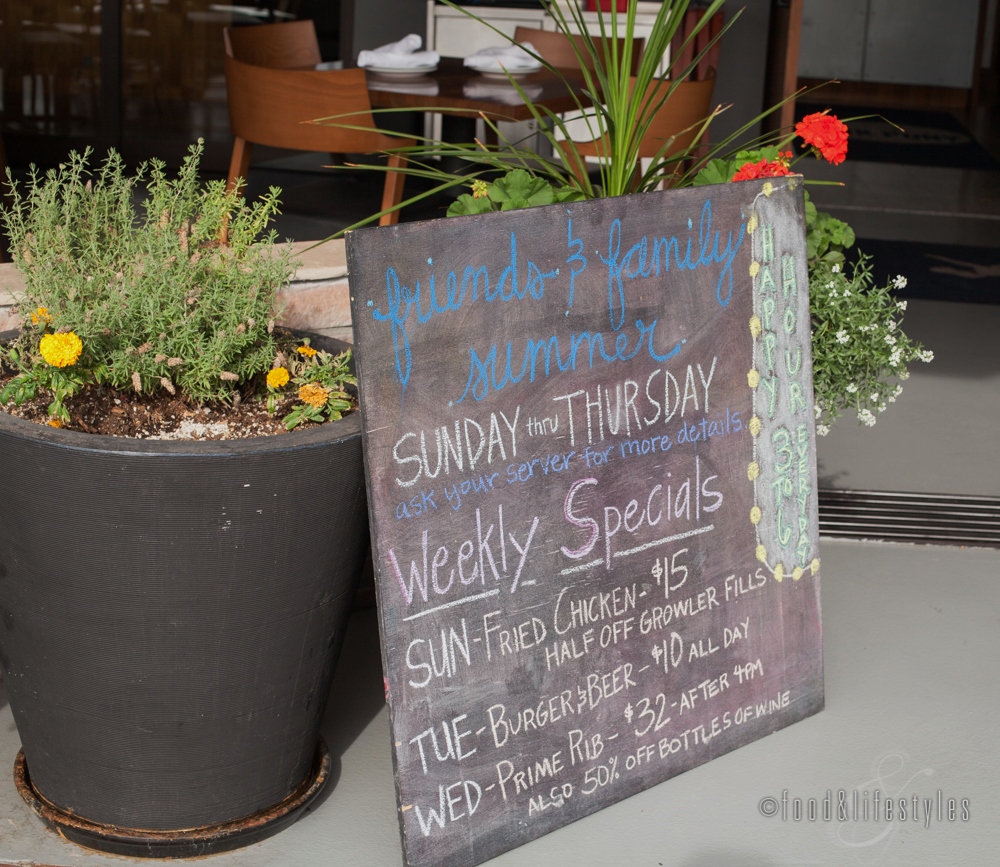 friends & family
summer
SUNDAY thru THURSDAY
ask your server for more details
Weekly Specials
SUN-FRIED CHICKEN-$15
HALF OFF GROWLER FILLS
TUE-BURGER & BEER-$10 ALL DAY
WED-PRIME RIB-$32-AFTER 4PM
ALSO 50% OFF BOTTLES OF WINE
HAPPY
HOUR
3 TO 6
EVERYDAY
©food&lifestyles